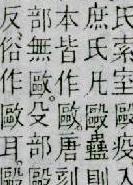 氏索室毆疫
庶氏凡毆蠱則
本皆作歐。唐刻
部無歐。殳部毆
反。俗作歐。